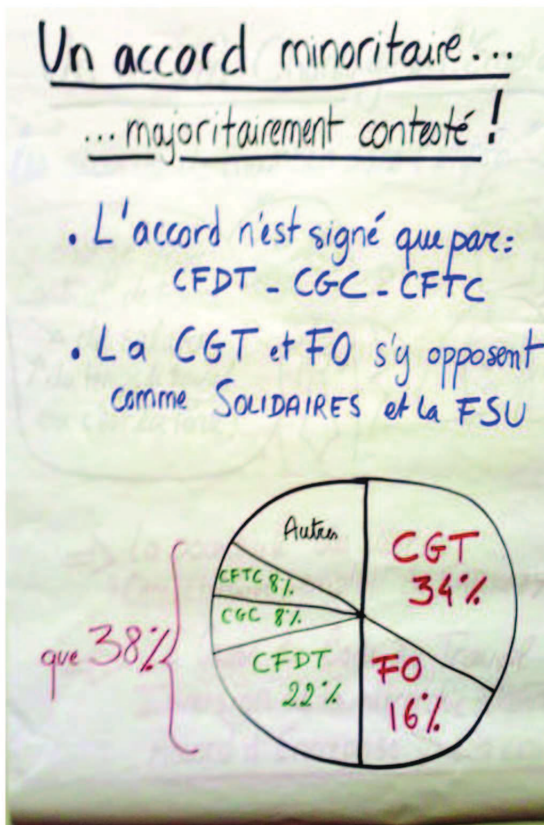 Un accord minoritaire...
... majoritairement contesté !
• L'accord n'est signé que par :
CFDT - CGC - CFTC
• La CGT et FO s'y opposent
comme SOLIDAIRES et la FSU
Autres
CGT
34%
CFTC 8%
CGC 8%
que 38%
CFDT
22%
FO
16%